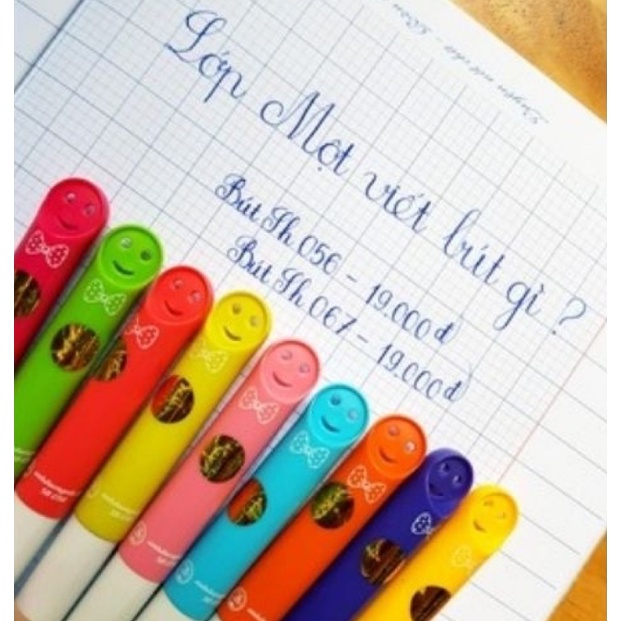 Lớp Một viết bút gì ?
Bút Sh 056 - 19.000đ
Bút Sh 067 - 19.000đ